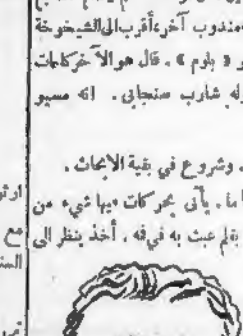 مندوب آخر، أقرب الى الشيخوخة
« بلوم » . قال هو الآخر كلمات
له شارب سنجابي . انه مسيو
. وشروع في بقية الابحاث .
ما . يأتى بحركات فيها شيء من
بقلم عبث به في فه . أخذ ينظر الى
مع